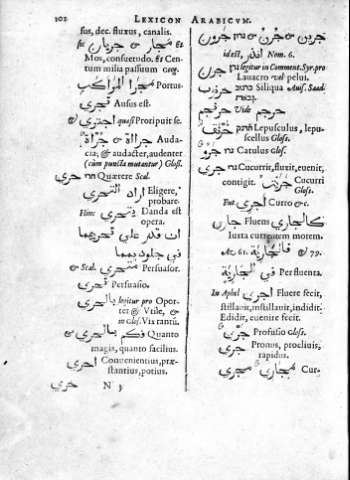 102 LEXICON ARABICUM.
sus, dec. fluxus, canalis.
مجار & جريان
Mos, consuetudo. & Cen-
tum millia passuum
مجرا المراكب Portus.
تجرى Ausus est.
اجترى quasi Proripuit se.
جرالة & جراة Auda-
cia, & audacter, audenter
(cum puncta mutantur) Gloss.
جرى Quærere Scal.
اراد التحرى Eligere,
probare.
Hinc يتحرى Danda est
opera.
ان قدر على تحريهما
في جلود بهما
& Scal. Persuasor.
Persuasio.
بالحرى legitur pro Opor-
tet & Utile, &
in Glos. Vix tantū.
فكم بالحرى Quanto
magis, quanto facilius.
احرى Convenientius, præ-
stantius, potius.
N 3 جري
جرين & جرن & جرون
idest, اندر Nom. 6.
legitur in Comment. Syr. pro
Lauacro vel pelui.
خروب Siliqua Auis. Saad.
جرجم Vide جرقم
خرنق Lepusculus, lepu-
scellus Glos.
جرو Catulus Glos.
جرى Cucurrit, fluxit, euenit,
contigit. جريت Cucurri
Glos.
Fut. اجرى Curro &c.
جارى Fluens كالجاري
Iuxta currentem morem.
Act 61. فالجارية & 79.
في الجارية Perfluenta.
In Aphel اجرى Fluere fecit,
stillavit, instillavit, indidit.
Edidit, euenire fecit.
جرى Profusio Glos.
جرى Pronus, procliuis,
rapidus.
مجرى & مجاري Cur-